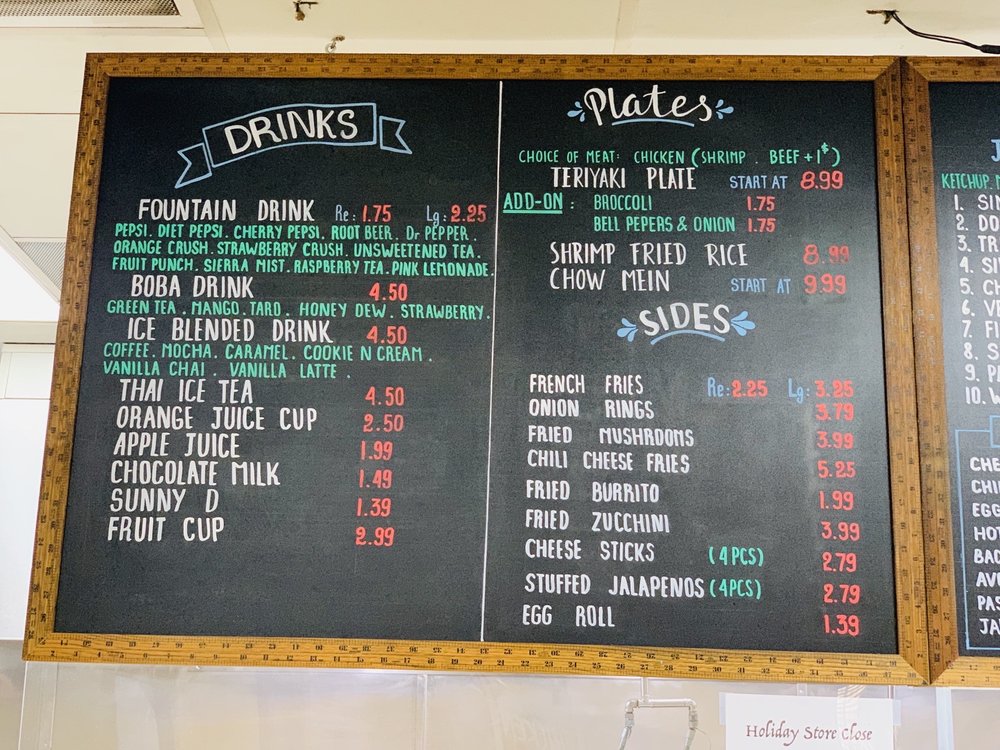 DRINKS
FOUNTAIN DRINK Re: 1.75 Lg: 2.25
PEPSI. DIET PEPSI. CHERRY PEPSI. ROOT BEER. Dr PEPPER.
ORANGE CRUSH. STRAWBERRY CRUSH. UNSWEETENED TEA.
FRUIT PUNCH. SIERRA MIST. RASPBERRY TEA. PINK LEMONADE.
BOBA DRINK 4.50
GREEN TEA. MANGO. TARO. HONEY DEW. STRAWBERRY.
ICE BLENDED DRINK 4.50
COFFEE. MOCHA. CARAMEL. COOKIE N CREAM.
VANILLA CHAI. VANILLA LATTE.
THAI ICE TEA 4.50
ORANGE JUICE CUP 2.50
APPLE JUICE 1.99
CHOCOLATE MILK 1.49
SUNNY D 1.39
FRUIT CUP 2.99
Plates
CHOICE OF MEAT: CHICKEN (SHRIMP. BEEF +1$)
TERIYAKI PLATE START AT 8.99
ADD-ON: BROCCOLI 1.75
BELL PEPERS & ONION 1.75
SHRIMP FRIED RICE 8.99
CHOW MEIN START AT 9.99
SIDES
FRENCH FRIES Re: 2.25 Lg: 3.25
ONION RINGS 3.79
FRIED MUSHROOMS 3.99
CHILI CHEESE FRIES 5.25
FRIED BURRITO 1.99
FRIED ZUCCHINI 3.99
CHEESE STICKS (4PCS) 2.79
STUFFED JALAPENOS (4PCS) 2.79
EGG ROLL 1.39
KETCHUP.
1.
2.
3.
4.
5.
6.
7.
8.
9.
10.
Holiday Store Close